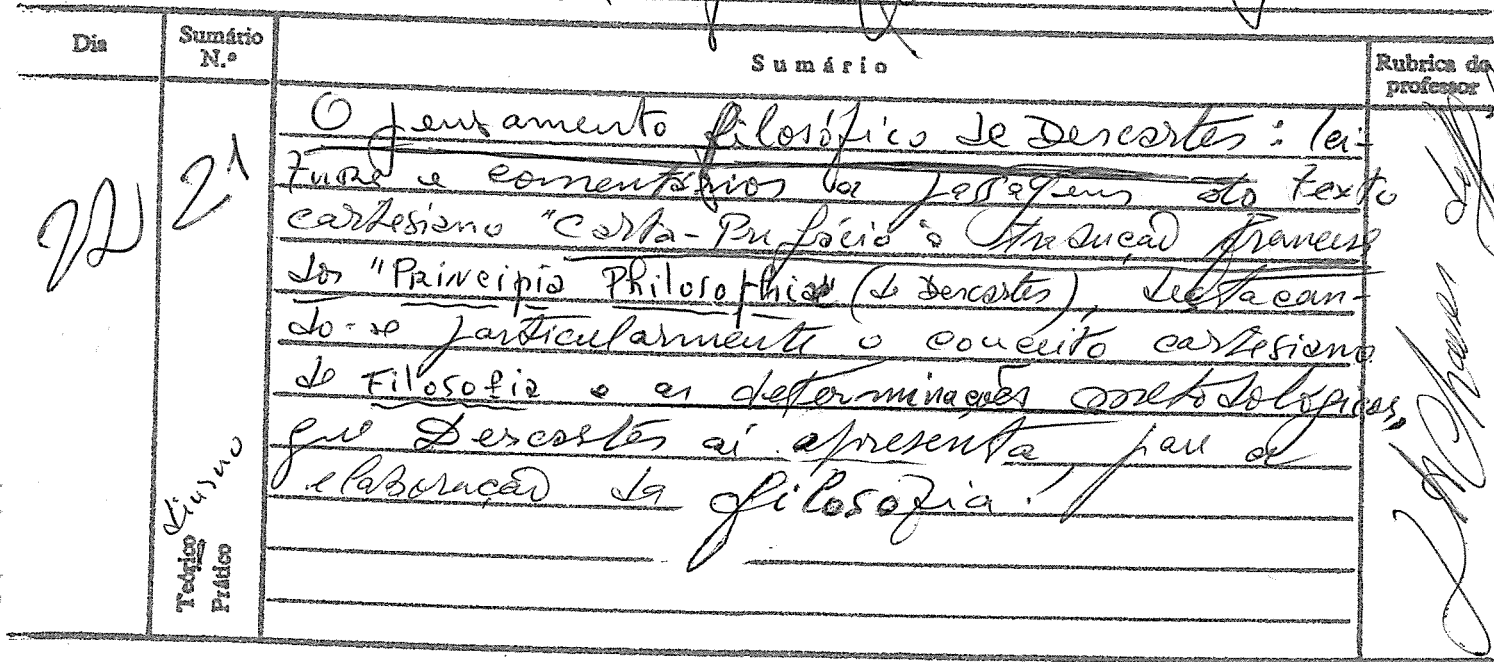 Dia
Sumário N.º
Sumário
Rubrica do professor
22
21
O pensamento filosófico de Descartes: lei-
tura e comentários a passagens do texto
cartesiano "Carta-Prefácio à tradução francesa
dos "Principia Philosophiae" (de Descartes), destacan-
do-se particularmente o conceito cartesiano
de Filosofia e as determinações metodológicas,
que Descartes aí apresenta, para a
elaboração da filosofia.
Teórico diurno
Prático